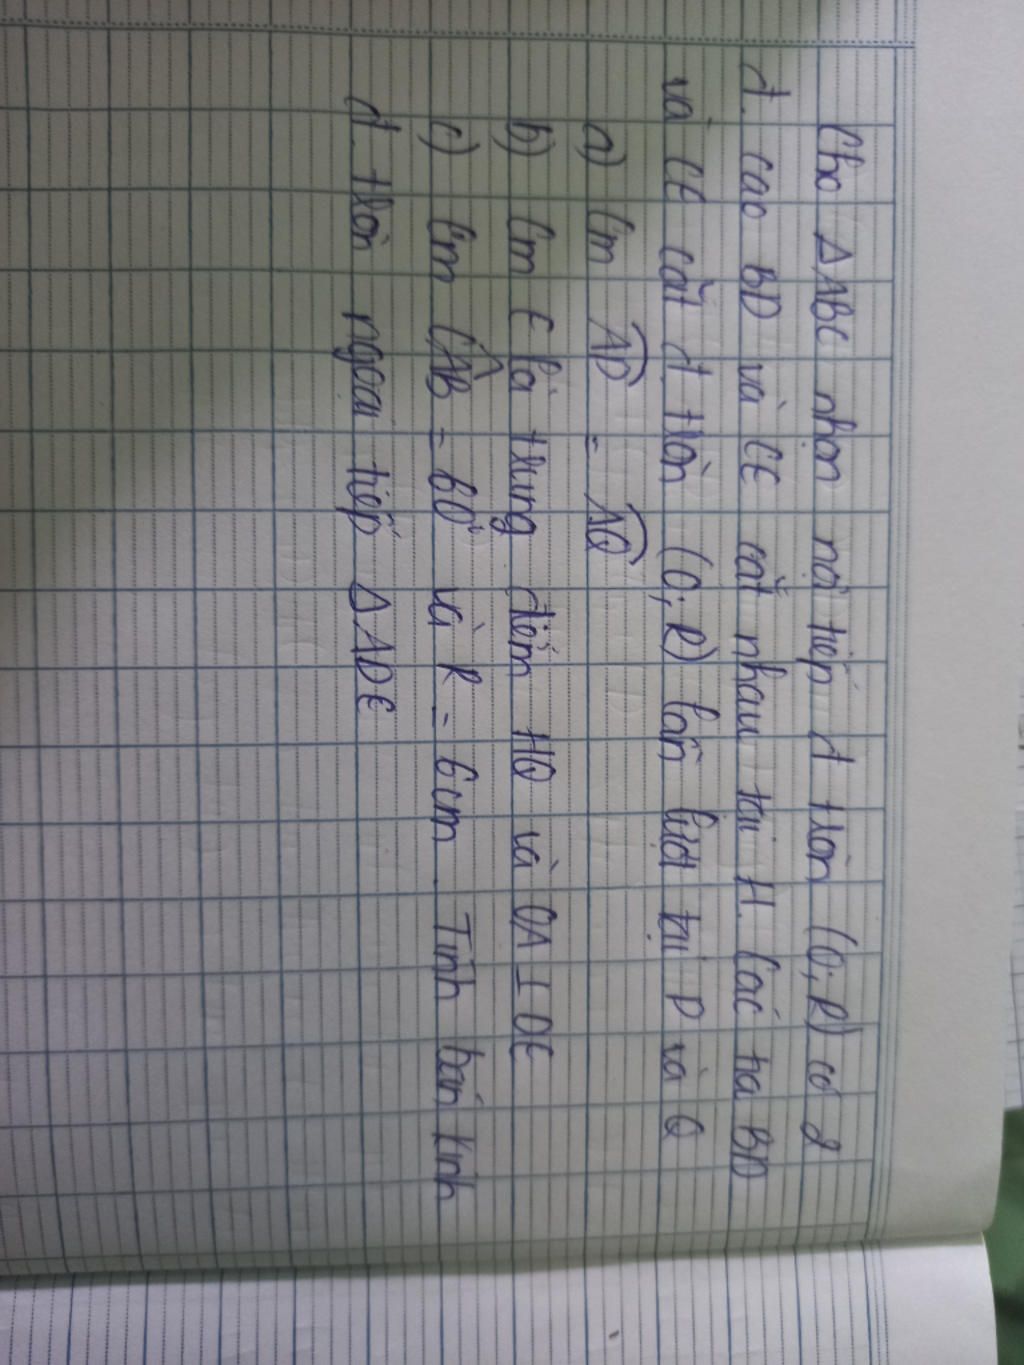 Cho ΔABC nhọn nội tiếp đ tròn (O; R) có 2
đ. cao BD và CE cắt nhau tại H. Các tia BD
và CE cắt đ. tròn (O; R) lần lượt tại P và Q
a) Cm AP = AQ
b) Cm E là trung điểm HQ và OA ⊥ DE
c) Cm CAB = 60° và R = 6cm. Tính bán kính
đ. tròn ngoại tiếp Δ ADE